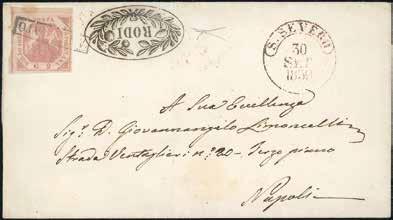 RODI
S. SEVERO
30
SET
1859
A Sua Eccellenza
Sig.r D. Giovannangelo Limoncelli
Strada Ventaglieri n.o 20 - Terzo piano
Napoli